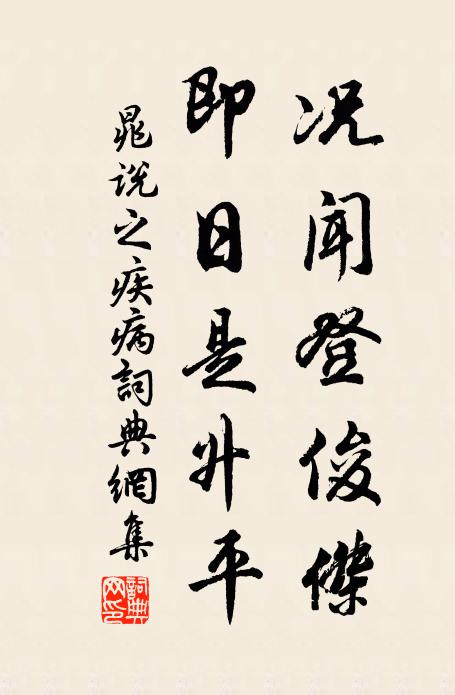 况聞登俊傑
即日是升平
晁说之疾病詞典網集
詞典網印